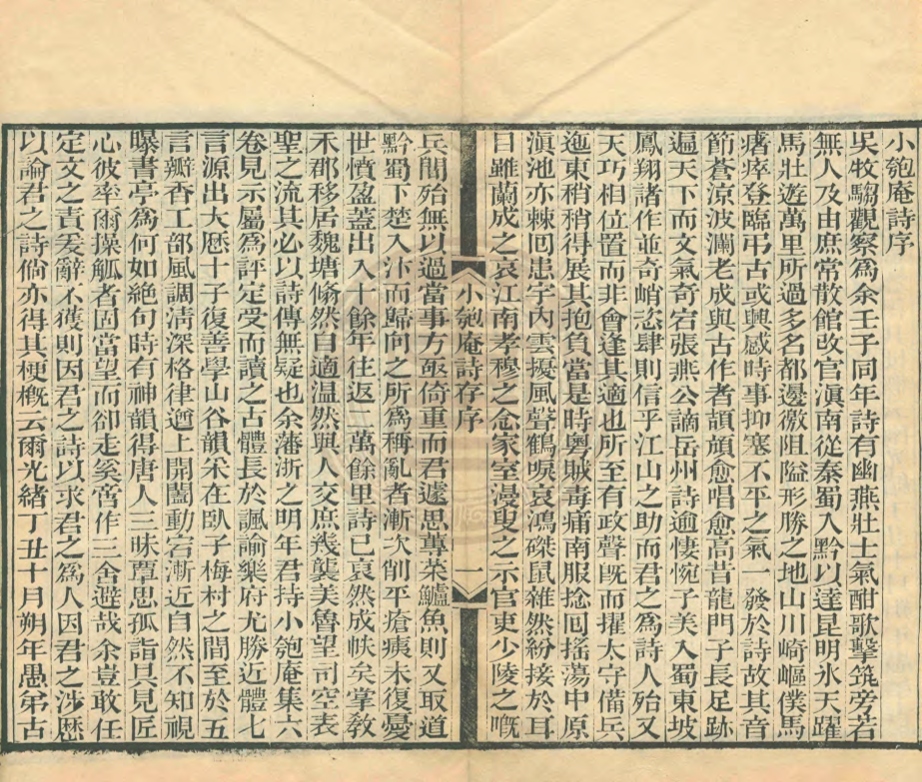 小匏庵詩序
吳牧騶觀察爲余壬子同年詩有幽燕壯士氣酣歌擊筑旁若
無人及由庶常散館改官滇南從秦蜀入黔以達昆明氷天躍
馬壯遊萬里所過多名都邊徼阻隘形勝之地山川崎嶇僕馬
瘏瘁登臨弔古或興感時事抑塞不平之氣一發於詩故其音
節蒼涼波瀾老成與古作者頡頏愈唱愈高昔龍門子長足跡
遍天下而文氣奇宕張燕公謫岳州詩逾悽惋子美入蜀東坡
鳳翔諸作並奇峭恣肆則信乎江山之助而君之爲詩人殆又
天巧相位置而非會逢其適也所至有政聲旣而擢太守備兵
迤東稍稍得展其抱負當是時粵賊毒痡南服捻囘搖蕩中原
滇池亦棘囘患宇內雲擾風聲鶴唳哀鴻磔鼠雜然紛接於耳
目雖蘭成之哀江南孝穆之念家室漫叟之示官吏少陵之嘅
小匏庵詩存序
一
兵間殆無以過當事方亟倚重而君遽思蓴菜鱸魚則又取道
黔蜀下楚入汴而歸向之所爲稱亂者漸次削平瘡痍未復憂
世憤盈蓋出入十餘年往返三萬餘里詩已裒然成帙矣掌敎
禾郡移居魏塘翛然自適溫然與人交庶幾襲美魯望司空表
聖之流其必以詩傳無疑也余藩浙之明年君持小匏庵集六
卷見示屬爲評定受而讀之古體長於諷諭樂府尤勝近體七
言源出大歷十子復善學山谷韻宋在臥子梅村之間至於五
言瓣香工部風調淸深格律遒上開闔動宕漸近自然不知視
曝書亭爲何如絕句時有神韻得唐人三昧覃思孤詣具見匠
心彼率爾操觚者固當望而卻走奚啻作三舍避哉余豈敢任
定文之責爰辭不獲則因君之詩以求君之爲人因君之涉歷
以論君之詩倘亦得其梗槪云爾光緒丁丑十月朔年愚弟古